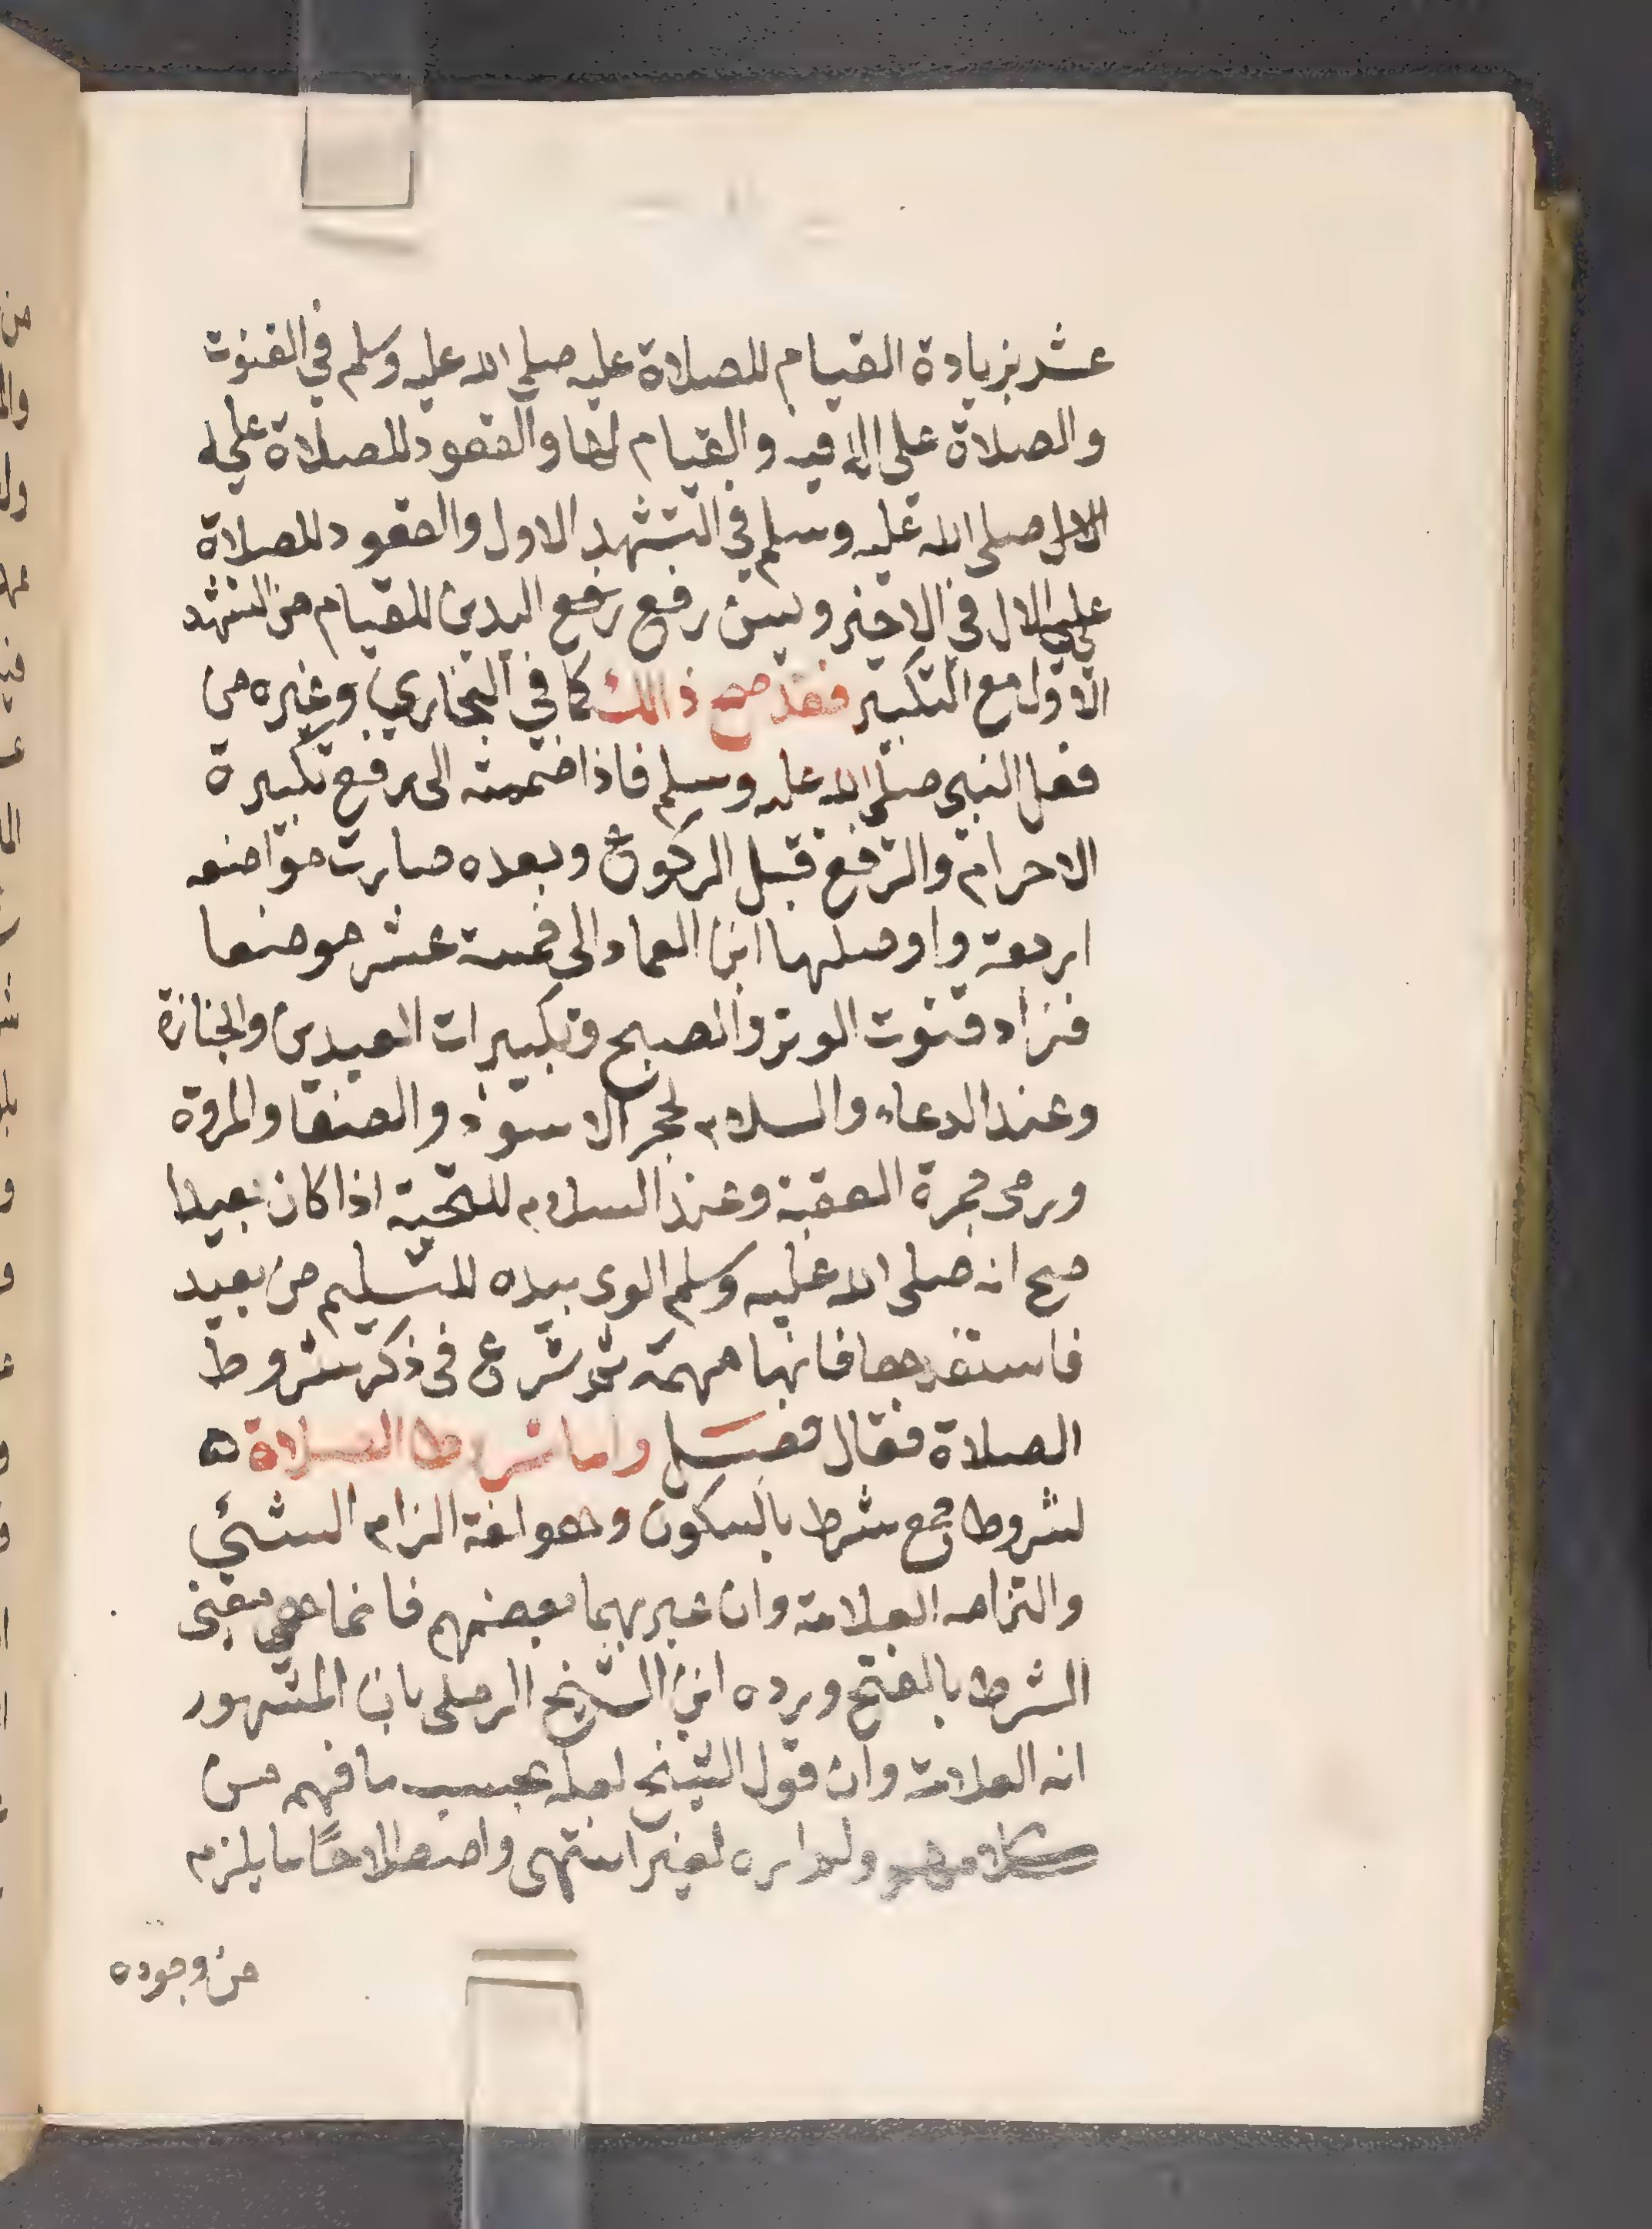 عشر بزيادة القيام للصلاة عليه صلى الله عليه وسلم في القنوت
والصلاة على اله فيه والقيام لها والقعود للصلاة على
الال صلى الله عليه وسلم في التشهد الاول والقعود للصلاة
على الال في الاخير ويسن رفع رفع اليدين للقيام من التشهد
الاول مع التكبير فقد صح ذالك كما في البخاري وغيره من
فعل النبي صلى الله عليه وسلم فاذا ضممته الى رفع تكبيرة
الاحرام والرفع قبل الركوع وبعده صارت مواضعه
اربعة واوصلها ابن العماد الى خمسة عشر موضعا
فزاد قنوت الوتر والصبح وتكبيرات العيدين والجنازة
وعند الدعاء والسلام لحجر الاسود والصفا والمروة
ورمى جمرة العقبة وعند السلام للتحية اذا كان بعيدا
صح انه صلى الله عليه وسلم الوى بيده للتسليم من بعيد
فاستفدها فانها مهمة ثم شرع فى ذكر شروط
الصلاة فقال فصل واما شروط الصلاة
لشروط جمع شرط بالسكون وهو لغة الزام الشئي
والتزامه العلامة وان عبر بهما بعضهم فانما هي معنى
الشرط بالفتح ورده ابن الشيخ الرملى بان المشهور
انه العلامة وان قول الشيخ لعله بحسب ما فهم من
كلامهم ولم اره لغير انتهى واصطلاحًا ما يلزم
من وجوده